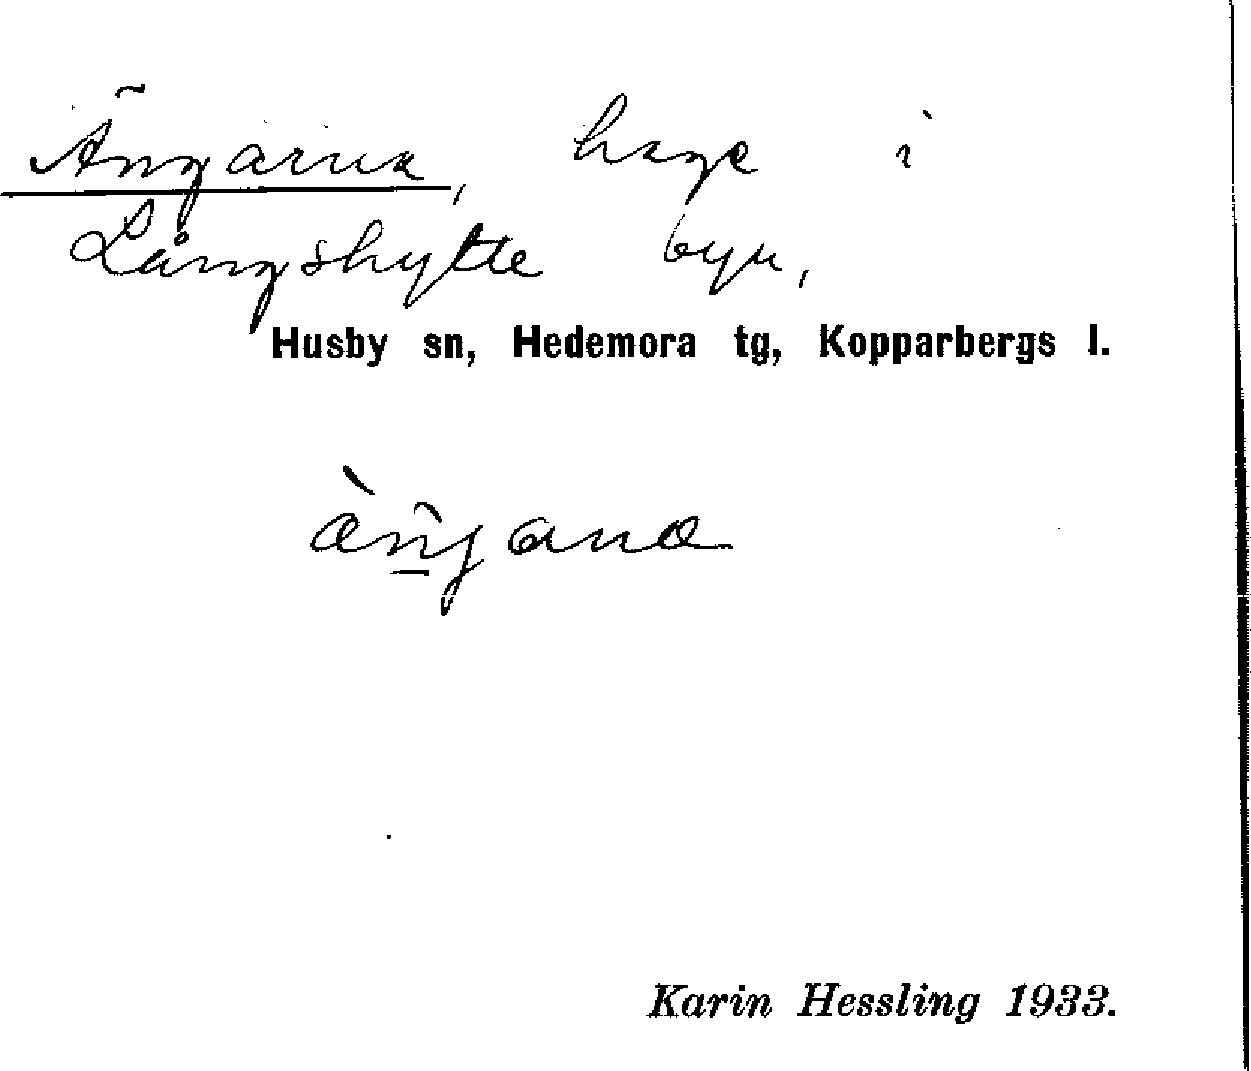 Ängarna, hage i
Långshytte byn,
Husby sn, Hedemora tg, Kopparbergs l.
Karin Hessling 1933.